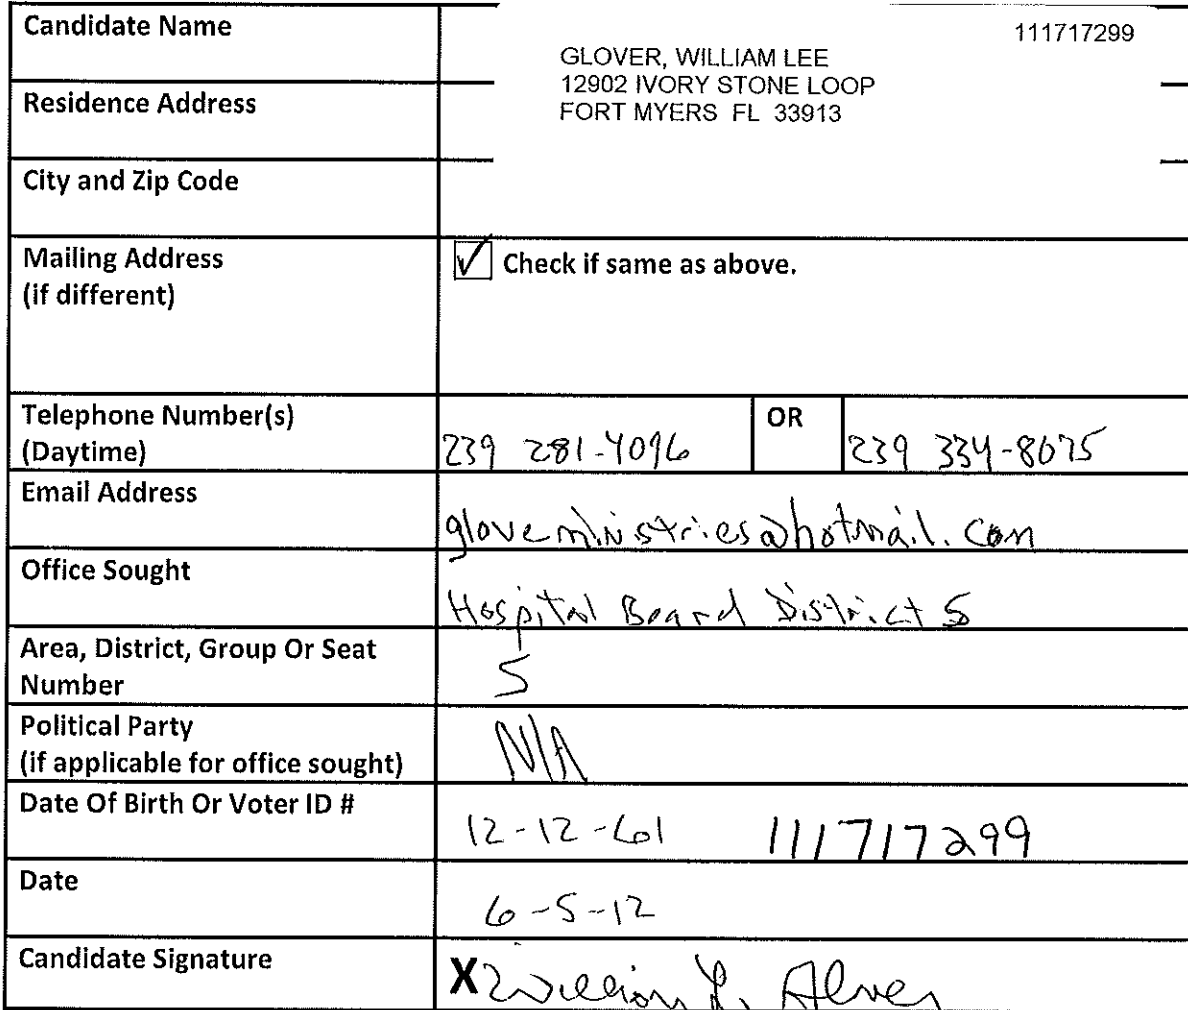 Candidate Name
111717299
GLOVER, WILLIAM LEE
12902 IVORY STONE LOOP
Residence Address
FORT MYERS FL 33913
City and Zip Code
Mailing Address
(if different)
✓ Check if same as above.
Telephone Number(s)
(Daytime)
239 281-4096 OR 239 334-8075
Email Address
gloveministries@hotmail.com
Office Sought
Hospital Board District 5
Area, District, Group Or Seat
Number
5
Political Party
(if applicable for office sought)
N/A
Date Of Birth Or Voter ID #
12-12-61 111717299
Date
6-5-12
Candidate Signature
X William L. Glover